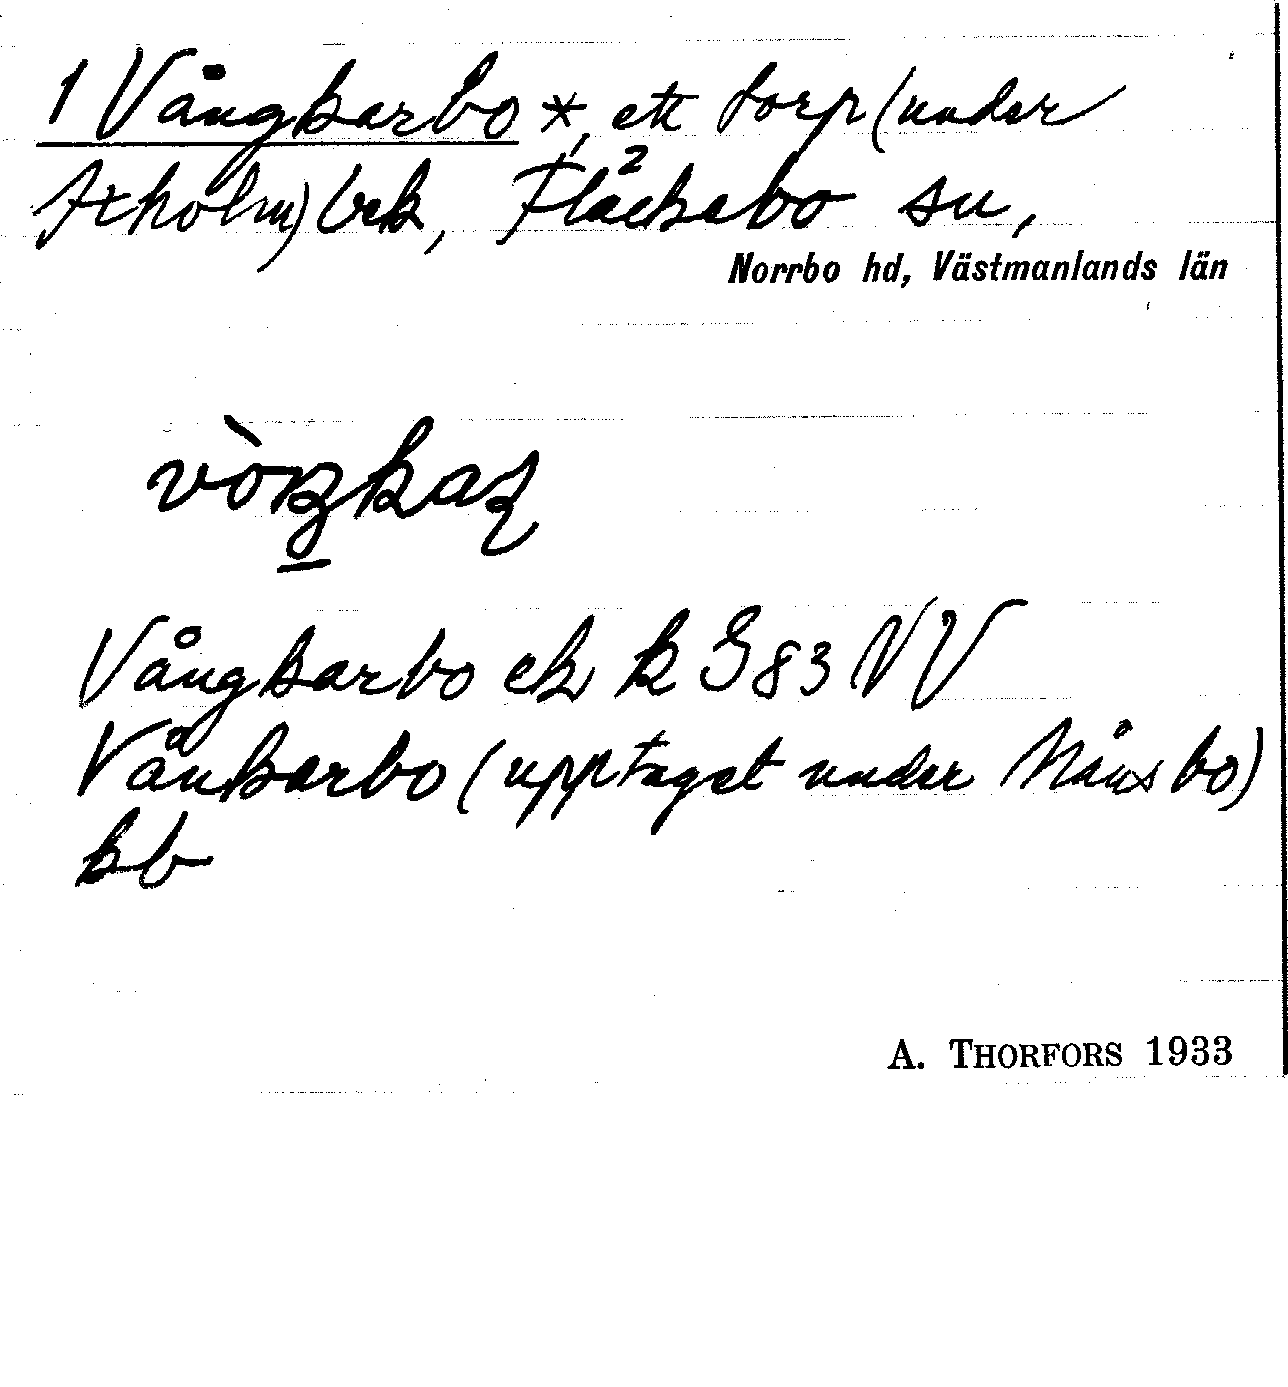 1 Vångkarbo *, ett torp (under
Axholm) bek, Fläckebo sn,
Norrbo hd, Västmanlands län
Vångkarbo ek k S 83 NV
Vånkarbo (upptaget under Månsbo)
kb
A. THORFORS 1933